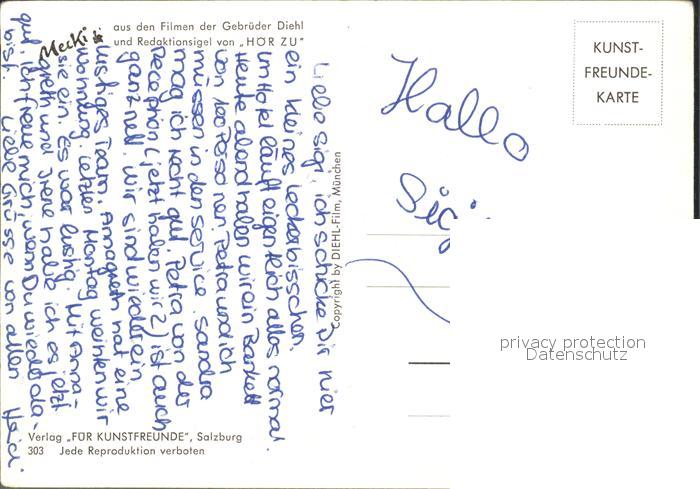 Mecki
aus den Filmen der Gebrüder Diehl
und Redaktionsigel von „HÖR ZU"
KUNST-
FREUNDE-
KARTE
Hallo
Sigi
Liebe Sigi, ich schicke Dir hier
ein kleines Leckerbisschen.
Im Hotel läuft eigentlich alles normal.
Heute abend haben wir ein Bankett
von 100 Personen. Petra und ich
müssen in den Service. Sandra
mag ich recht gut. Petra von der
Reception (jetzt haben wir 2) ist auch
ganz nett. Wir sind wieder ein
lustiges Team. Annagreth hat eine
Wohnung. Letzten Montag weihten wir
sie ein. Es war lustig. Mit Anna-
greth und Irene habe ich es jetzt
gut. Ich freue mich, wenn Du wieder da-
bist. Liebe Grüsse von allen Heidi.
Copyright by DIEHL-Film, München
privacy protection
Datenschutz
Verlag „FÜR KUNSTFREUNDE", Salzburg
303 Jede Reproduktion verboten